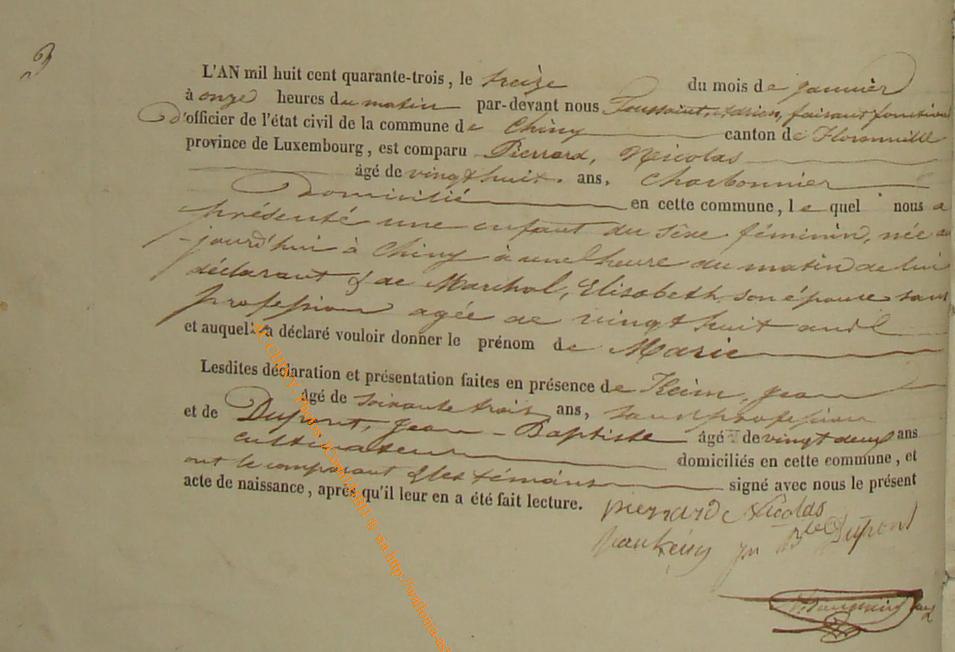 3
L'AN mil huit cent quarante-trois, le treize du mois de janvier
à onze heures du matin par-devant nous Toussaint, faisant fonctions
d'officier de l'état civil de la commune de Chiny canton de Florenville
province de Luxembourg, est comparu Pierrard, Nicolas
âgé de vingt huit ans, charbonnier
Domicilié en cette commune, le quel nous a
présenté une enfant du sexe féminin, née au
jourd'hui à Chiny à une heure du matin de lui
déclarant & de Maréchal, Elisabeth, son épouse sans
profession agée de vingt huit ans
et auquel il a déclaré vouloir donner le prénom de Marie
Lesdites déclaration et présentation faites en présence de Keim, Jean
âgé de soixante trois ans, sans profession
et de Dupont, Jean-Baptiste âgé de vingt deux ans
cultivateur domiciliés en cette commune, et
ont le comparant & les témoins signé avec nous le présent
acte de naissance, après qu'il leur en a été fait lecture.
pierrard Nicolas
Jean Keim jn Bte Dupont